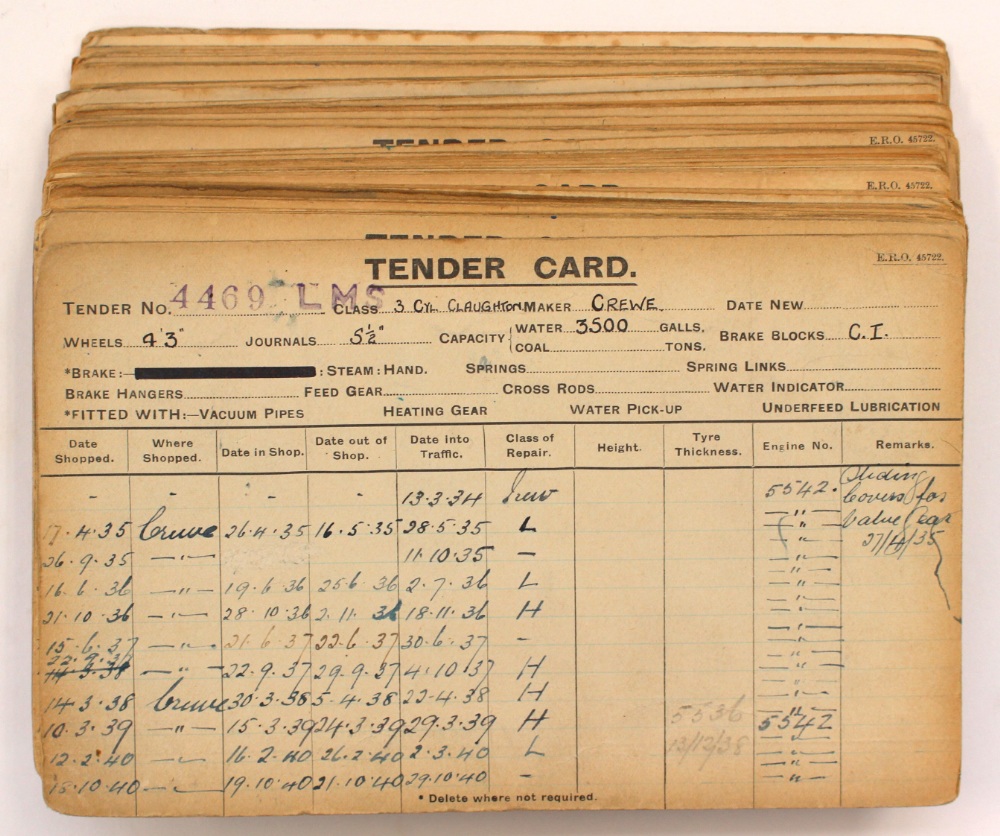 E.R.O. 45722.
E.R.O. 45722.
E.R.O. 45722.
TENDER CARD.
TENDER No. 4469 LMS CLASS 3 CYL CLAUGHTON MAKER CREWE. DATE NEW
WHEELS 4'3" JOURNALS 5½" CAPACITY { WATER 3500 GALLS. COAL TONS. BRAKE BLOCKS C.I.
*BRAKE:— : STEAM: HAND. SPRINGS SPRING LINKS
BRAKE HANGERS FEED GEAR CROSS RODS WATER INDICATOR
*FITTED WITH:—VACUUM PIPES HEATING GEAR WATER PICK-UP UNDERFEED LUBRICATION
Date Shopped. Where Shopped. Date in Shop. Date out of Shop. Date into Traffic. Class of Repair. Height. Tyre Thickness. Engine No. Remarks.
- - - - 13.3.34 New 5542. Sliding Covers for
17.4.35 Crewe 26.4.35 16.5.35 28.5.35 L —"— Valve Gear
26.9.35 —"— 11.10.35 — —"— 27/4/35
16.6.36 —"— 19.6.36 25.6.36 2.7.36 L —"—
21.10.36 —"— 28.10.36 2.11.36 18.11.36 H —"—
15.6.37 —"— 21.6.37 22.6.37 30.6.37 - —"—
22.9.37 —"— 22.9.37 29.9.37 4.10.37 H —"—
14.3.38 Crewe 30.3.38 5.4.38 22.4.38 H —"—
10.3.39 —"— 15.3.39 24.3.39 29.3.39 H 5536 5542
12.2.40 —"— 16.2.40 26.2.40 2.3.40 L 13/12/38 —"—
15.10.40 —"— 19.10.40 21.10.40 29.10.40 - —"—
* Delete where not required.